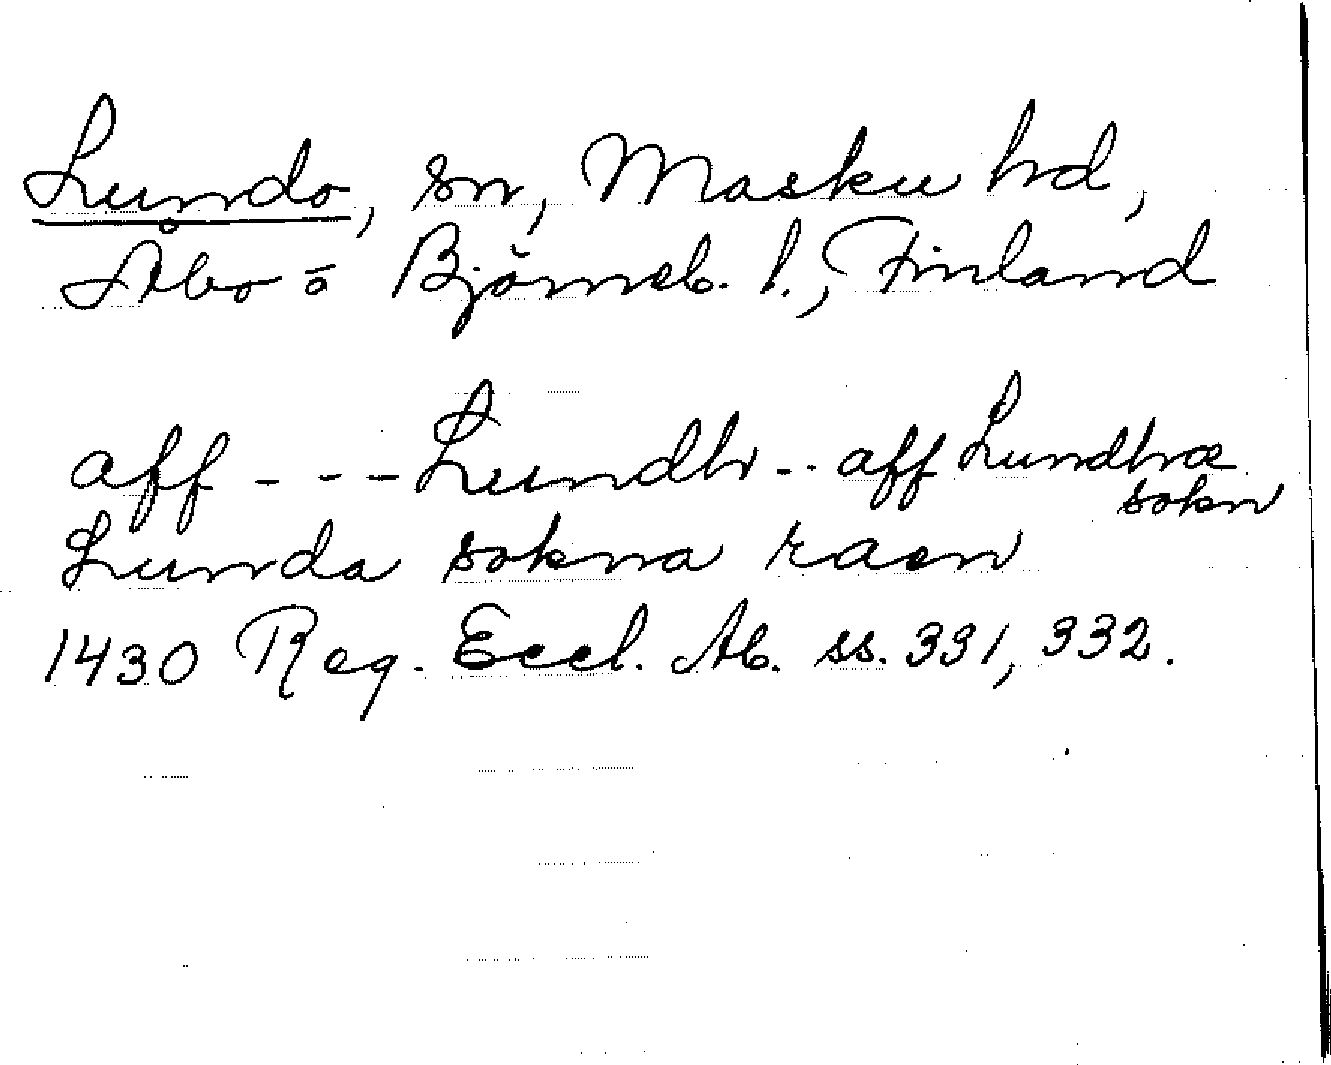 Lundo, sn, Masku hd,
Åbo o Björneb. l., Finland
aff --- Lundh -- aff Lundhræ
sokn
Lunda sokna raan
1430 Reg. Eccl. Ab. ss. 331, 332.